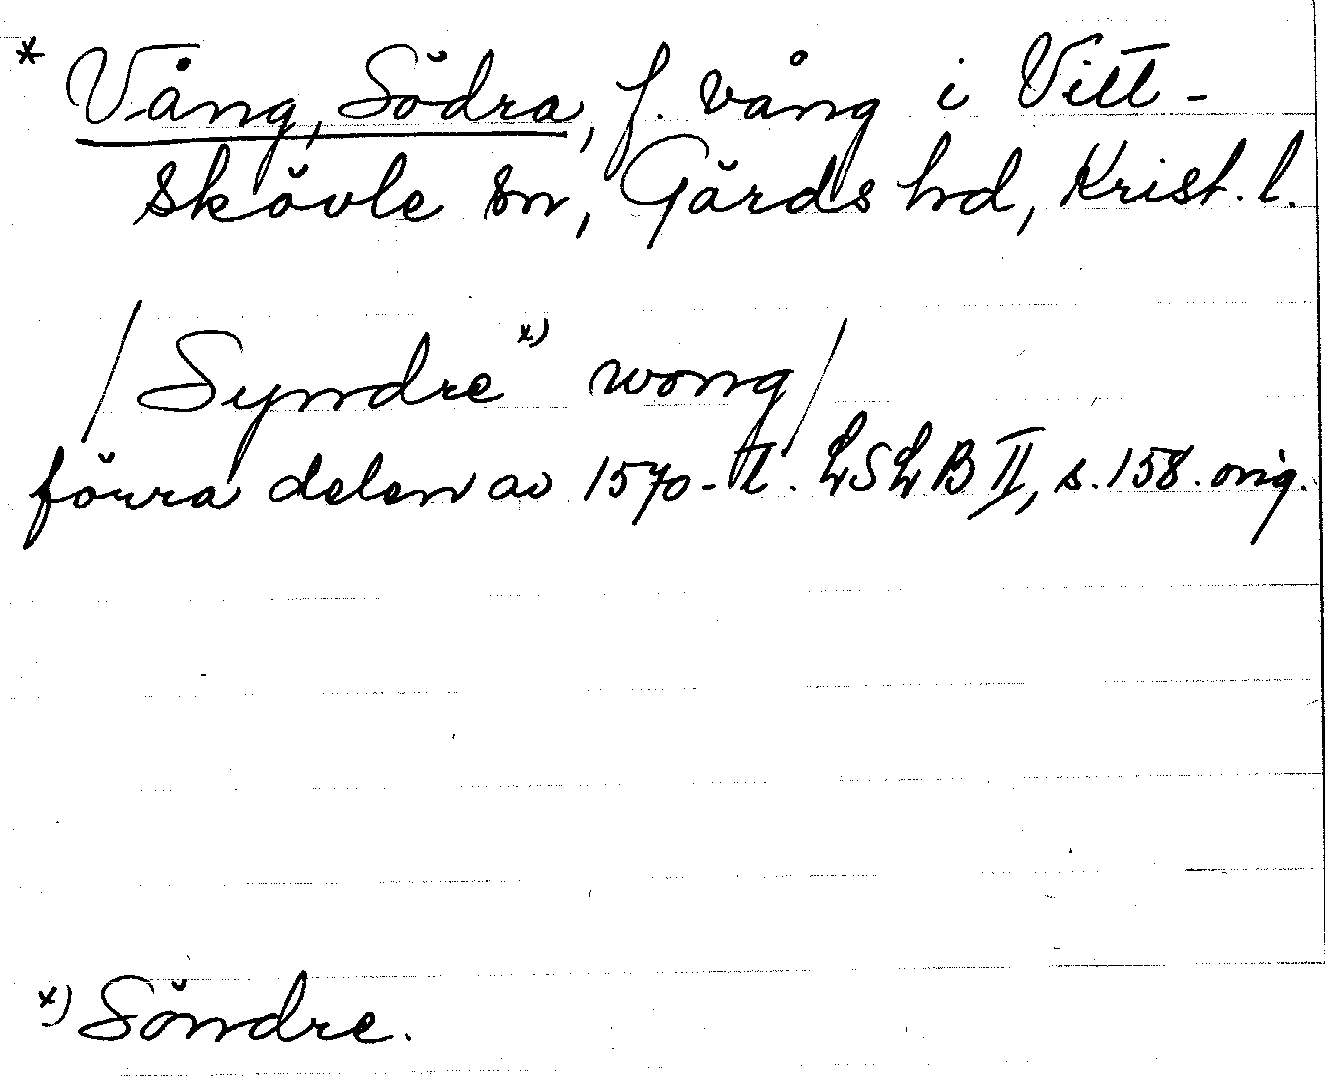 * Vång, Södra, f. vång i Vitt-
skövle sn, Gärds hd, Krist. l.
/Syndre x) wong/
förra delen av 1570-t. LSLB II, s. 158. orig.
x) Söndre.